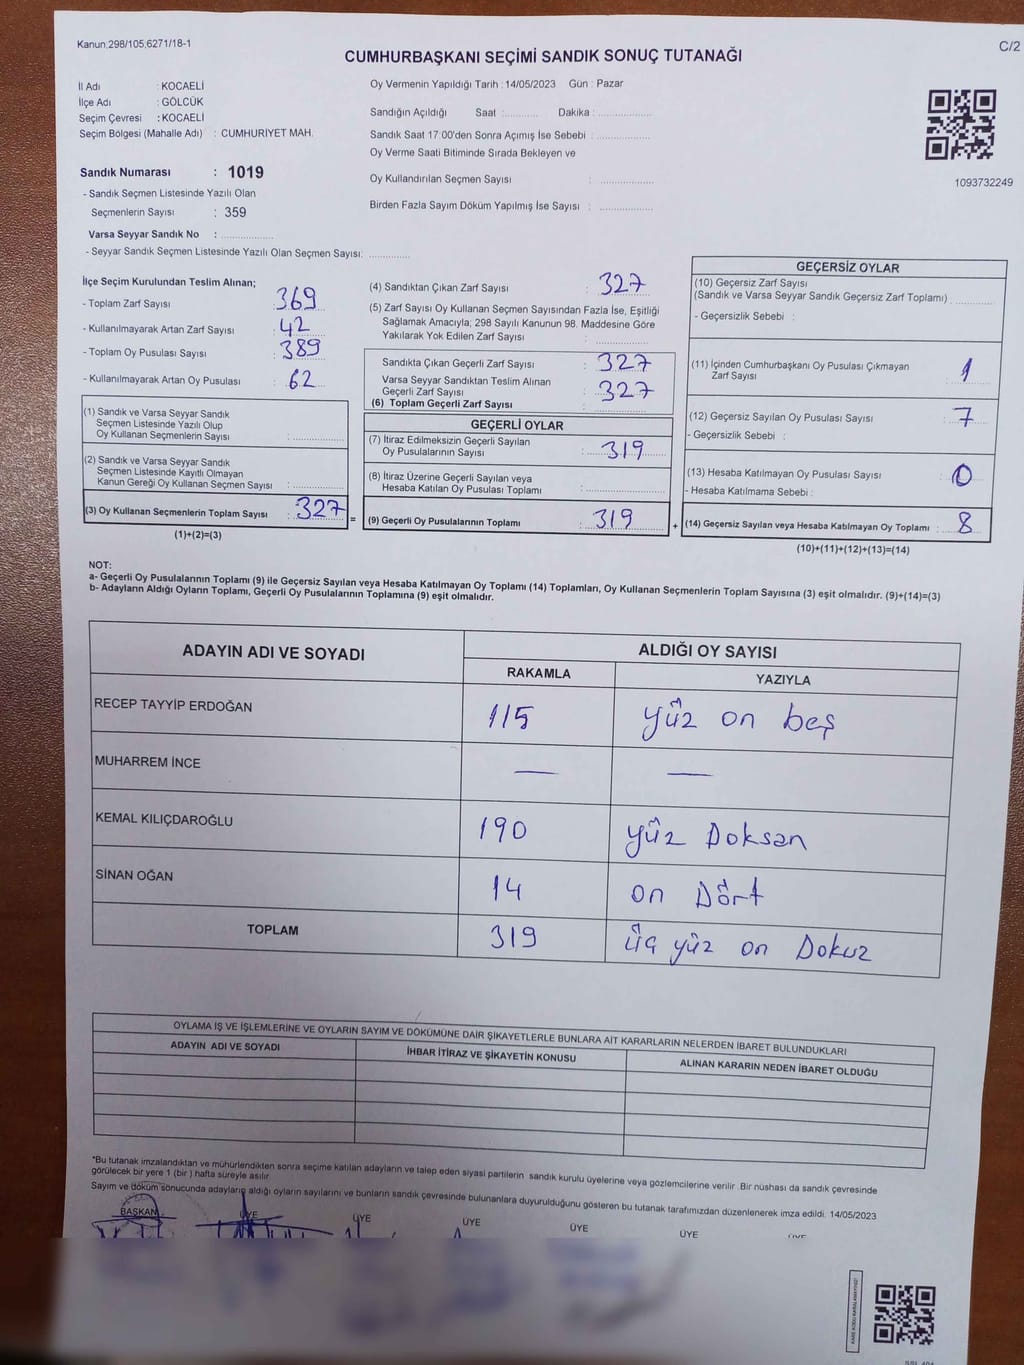 Kanun.298/105,6271/18-1
C/2
CUMHURBAŞKANI SEÇİMİ SANDIK SONUÇ TUTANAĞI
İl Adı : KOCAELİ
İlçe Adı : GÖLCÜK
Seçim Çevresi : KOCAELİ
Seçim Bölgesi (Mahalle Adı) : CUMHURİYET MAH.
Sandık Numarası : 1019
- Sandık Seçmen Listesinde Yazılı Olan
Seçmenlerin Sayısı : 359
Varsa Seyyar Sandık No :
- Seyyar Sandık Seçmen Listesinde Yazılı Olan Seçmen Sayısı:
Oy Vermenin Yapıldığı Tarih : 14/05/2023 Gün : Pazar
Sandığın Açıldığı Saat : Dakika :
Sandık Saat 17:00'den Sonra Açımış İse Sebebi :
Oy Verme Saati Bitiminde Sırada Bekleyen ve
Oy Kullandırılan Seçmen Sayısı :
Birden Fazla Sayım Döküm Yapılmış İse Sayısı :
1093732249
İlçe Seçim Kurulundan Teslim Alınan;
- Toplam Zarf Sayısı : 369
- Kullanılmayarak Artan Zarf Sayısı : 42
- Toplam Oy Pusulası Sayısı : 389
- Kullanılmayarak Artan Oy Pusulası : 62
(1) Sandık ve Varsa Seyyar Sandık
Seçmen Listesinde Yazılı Olup
Oy Kullanan Seçmenlerin Sayısı :
(2) Sandık ve Varsa Seyyar Sandık
Seçmen Listesinde Kayıtlı Olmayan
Kanun Gereği Oy Kullanan Seçmen Sayısı :
(3) Oy Kullanan Seçmenlerin Toplam Sayısı : 327 =
(1)+(2)=(3)
(4) Sandıktan Çıkan Zarf Sayısı : 327
(5) Zarf Sayısı Oy Kullanan Seçmen Sayısından Fazla İse, Eşitliği
Sağlamak Amacıyla; 298 Sayılı Kanunun 98. Maddesine Göre
Yakılarak Yok Edilen Zarf Sayısı :
Sandıkta Çıkan Geçerli Zarf Sayısı : 327
Varsa Seyyar Sandıktan Teslim Alınan
Geçerli Zarf Sayısı : 327
(6) Toplam Geçerli Zarf Sayısı :
GEÇERLİ OYLAR
(7) İtiraz Edilmeksizin Geçerli Sayılan
Oy Pusulalarının Sayısı : 319
(8) İtiraz Üzerine Geçerli Sayılan veya
Hesaba Katılan Oy Pusulası Toplamı :
(9) Geçerli Oy Pusulalarının Toplamı : 319 +
GEÇERSİZ OYLAR
(10) Geçersiz Zarf Sayısı
(Sandık ve Varsa Seyyar Sandık Geçersiz Zarf Toplamı)
- Geçersizlik Sebebi :
(11) İçinden Cumhurbaşkanı Oy Pusulası Çıkmayan
Zarf Sayısı : 1
(12) Geçersiz Sayılan Oy Pusulası Sayısı : 7
- Geçersizlik Sebebi :
(13) Hesaba Katılmayan Oy Pusulası Sayısı : 0
- Hesaba Katılmama Sebebi :
(14) Geçersiz Sayılan veya Hesaba Katılmayan Oy Toplamı : 8
(10)+(11)+(12)+(13)=(14)
NOT:
a- Geçerli Oy Pusulalarının Toplamı (9) ile Geçersiz Sayılan veya Hesaba Katılmayan Oy Toplamı (14) Toplamları, Oy Kullanan Seçmenlerin Toplam Sayısına (3) eşit olmalıdır. (9)+(14)=(3)
b- Adayların Aldığı Oyların Toplamı, Geçerli Oy Pusulalarının Toplamına (9) eşit olmalıdır.
ADAYIN ADI VE SOYADI ALDIĞI OY SAYISI
RAKAMLA YAZIYLA
RECEP TAYYİP ERDOĞAN 115 yüz on beş
MUHARREM İNCE — —
KEMAL KILIÇDAROĞLU 190 yüz Doksan
SİNAN OĞAN 14 on Dört
TOPLAM 319 üç yüz on Dokuz
OYLAMA İŞ VE İŞLEMLERİNE VE OYLARIN SAYIM VE DÖKÜMÜNE DAİR ŞİKAYETLERLE BUNLARA AİT KARARLARIN NELERDEN İBARET BULUNDUKLARI
ADAYIN ADI VE SOYADI İHBAR İTİRAZ VE ŞİKAYETİN KONUSU ALINAN KARARIN NEDEN İBARET OLDUĞU
*Bu tutanak imzalandıktan ve mühürlendikten sonra seçime katılan adayların ve talep eden siyasi partilerin sandık kurulu üyelerine veya gözlemcilerine verilir. Bir nüshası da sandık çevresinde
görülecek bir yere 1 (bir ) hafta süreyle asılır.
Sayım ve döküm sonucunda adayların aldığı oyların sayılarını ve bunların sandık çevresinde bulunanlara duyurulduğunu gösteren bu tutanak tarafımızdan düzenlenerek imza edildi. 14/05/2023
BAŞKAN ÜYE ÜYE ÜYE ÜYE ÜYE ÜYE